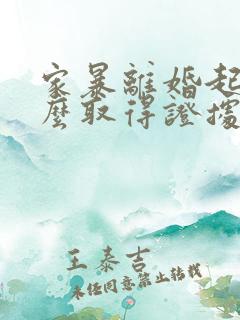 家暴離婚起
麼取得證據
王泰吉
未任同意禁止转载